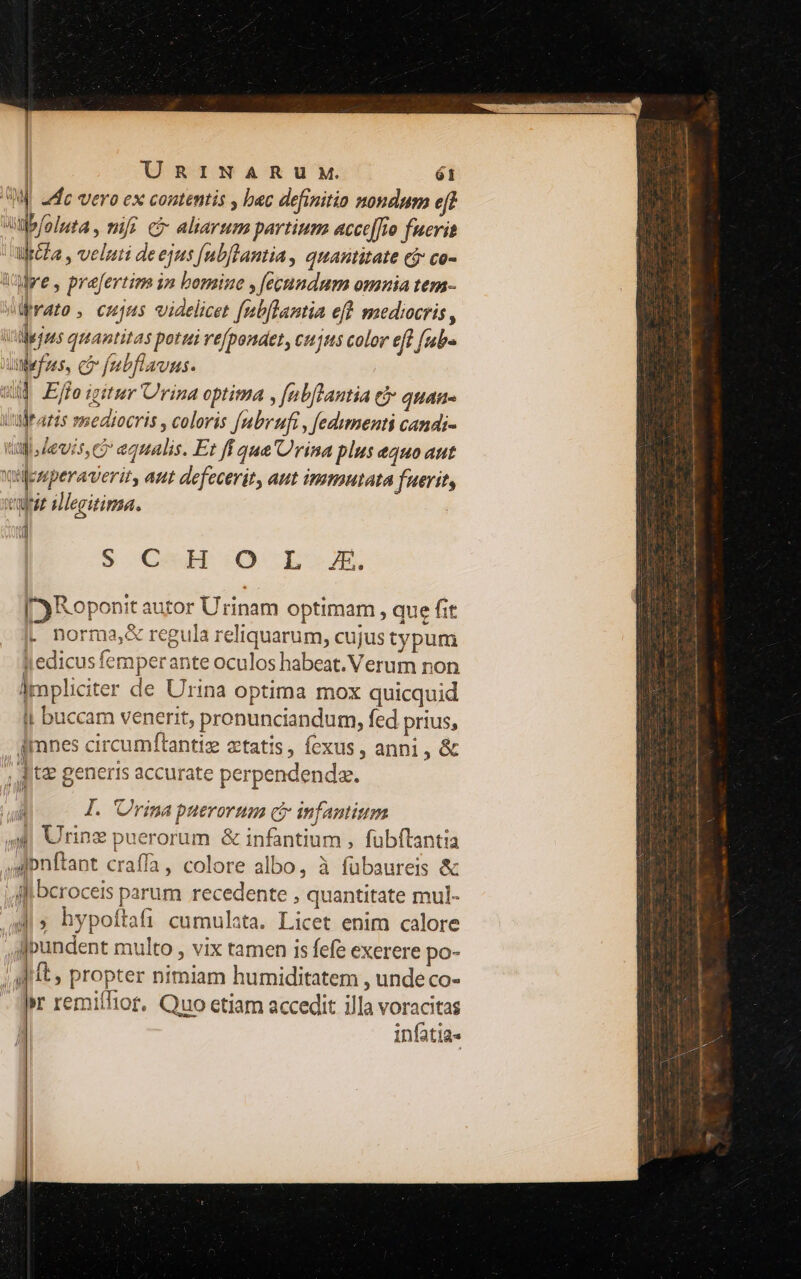 URINARUM. 61
Ac vero ex contentis, hæc definitio nondum eſt
ſoluta, niſi & aliarum partium acceſſio fuerit
, veluti de ejus ſubſtantia, quantitate & co-
re, præſertim in homine, ſecundum omnia tem-
rato, cujus videlicet ſubſtantia eſt mediocris,
jus quantitas potui reſpondet, cujus color eſt ſub-
fus, & ſubflavus.
Eſto igitur Urina optima, ſubſtantia & quan-
atis mediocris, coloris ſubrufi, ſedimenti candi-
, levis, & æqualis. Et ſi quæ Urina plus æquo aut
peraverit, aut defecerit, aut immutata fuerit,
rit illegitima.
SCHOLÆ.
Roponit autor Urinam optimam, que fit
norma, & regula reliquarum, cujus typum
edicus ſemper ante oculos habeat. Verum non
mpliciter de Urina optima mox quicquid
buccam venerit, pronunciandum, ſed prius,
mnes circumſtantiæ ætatis, ſexus, anni, &
tæ generis accurate perpendendæ.
I. Urina puerorum & infantium
Urinæ puerorum & infantium, ſubſtantia
onſtant craſſa, colore albo, à ſubaureis &
bcroceis parum recedente, quantitate mul-
, hypoſtaſi cumulata. Licet enim calore
bundent multo, vix tamen is ſeſe exerere po-
ſt, propter nimiam humiditatem, unde co-
or remiſſior. Quo etiam accedit illa voracitas
inſatia-